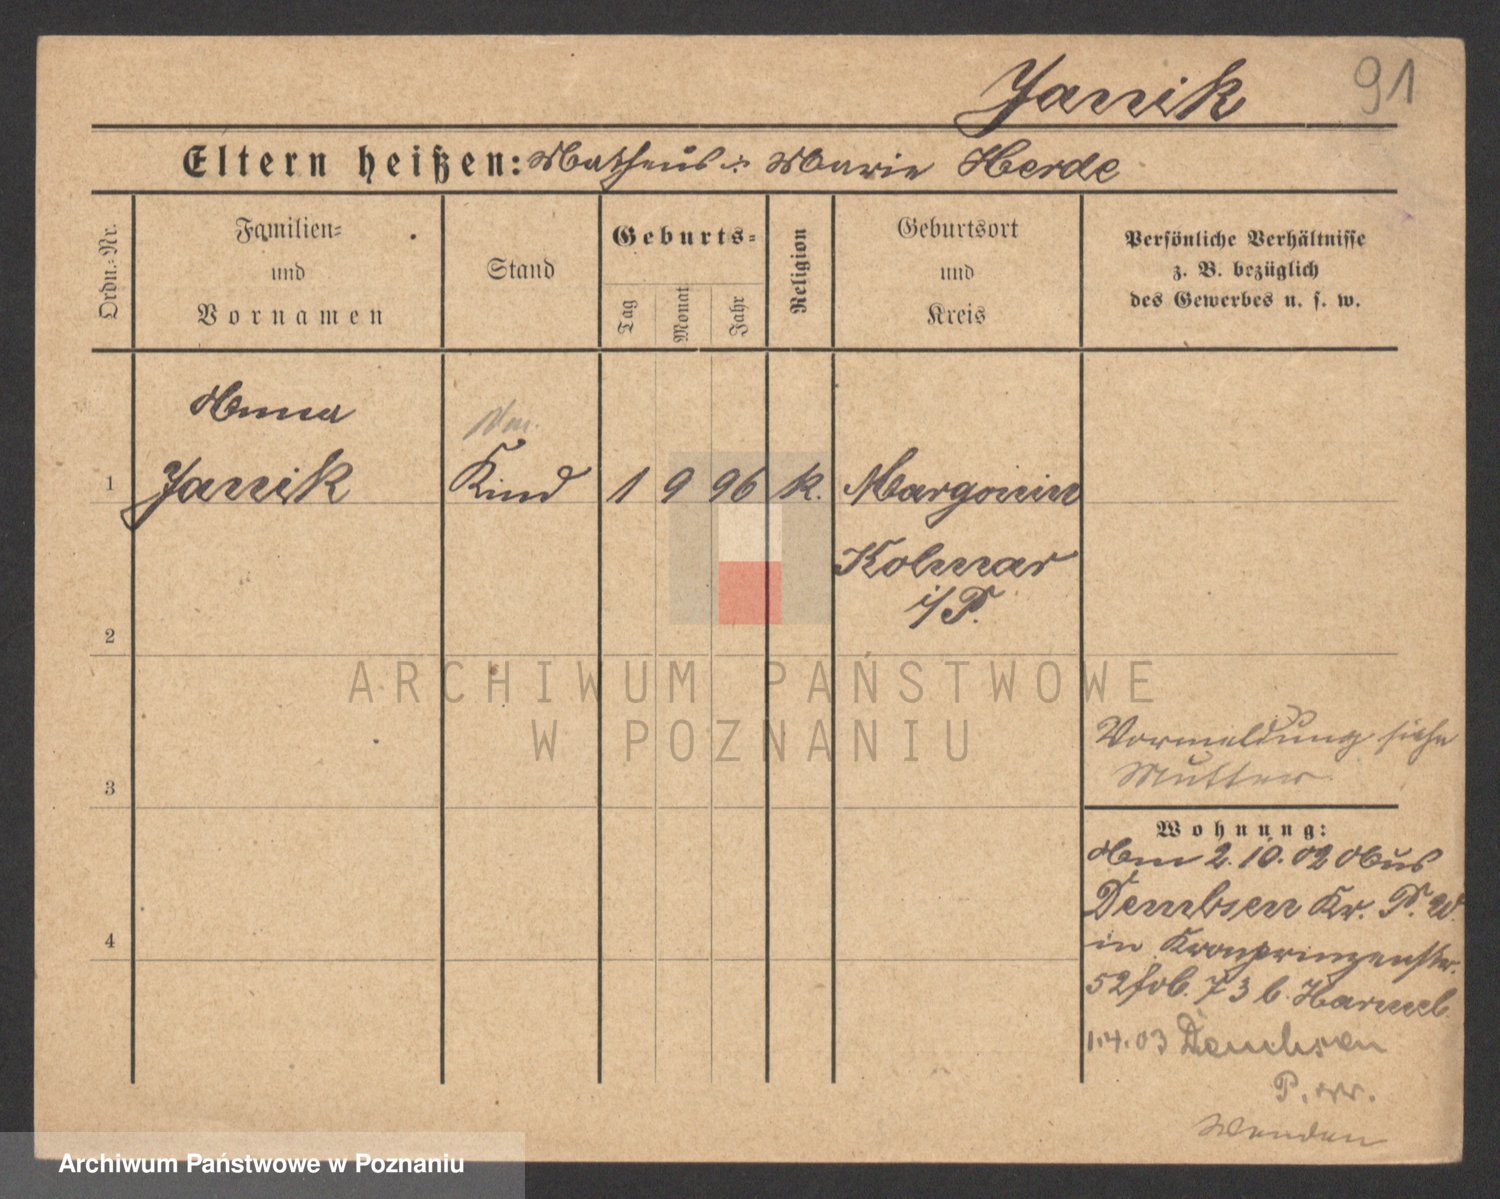 Janik 91
Eltern heißen: Matheus u. Marie Herde
Ordn.-Nr.
Familien-
und
Vornamen
Stand
Geburts-
Tag
Monat
Jahr
Religion
Geburtsort
und
Kreis
Persönliche Verhältnisse
z. B. bezüglich
des Gewerbes u. s. w.
Anna
1 Janik Kind 1 9 96 k. Margonin
Kolmar
i/P.
2
3
4
Vormeldung siehe
Mutter
Wohnung:
Am 2.10.02 Aus
Dembsen Kr. P. W.
in Kronprinzenstr.
52 73 b.
1.4.03 Dembsen
P.
Wenden
ARCHIWUM PAŃSTWOWE
W POZNANIU
Archiwum Państwowe w Poznaniu